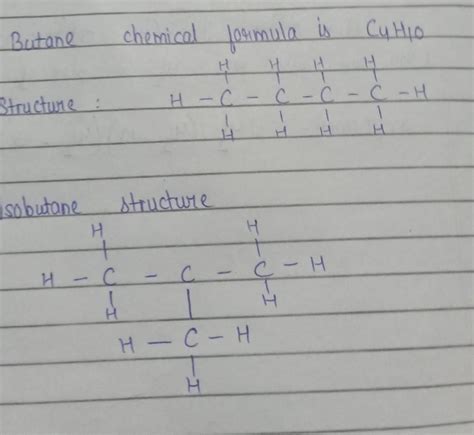 Butane chemical formula is C4H10
H H H H
Structure : H - C - C - C - C - H
H H H H
isobutane structure
H H
H - C - C - C - H
H H
H - C - H
H